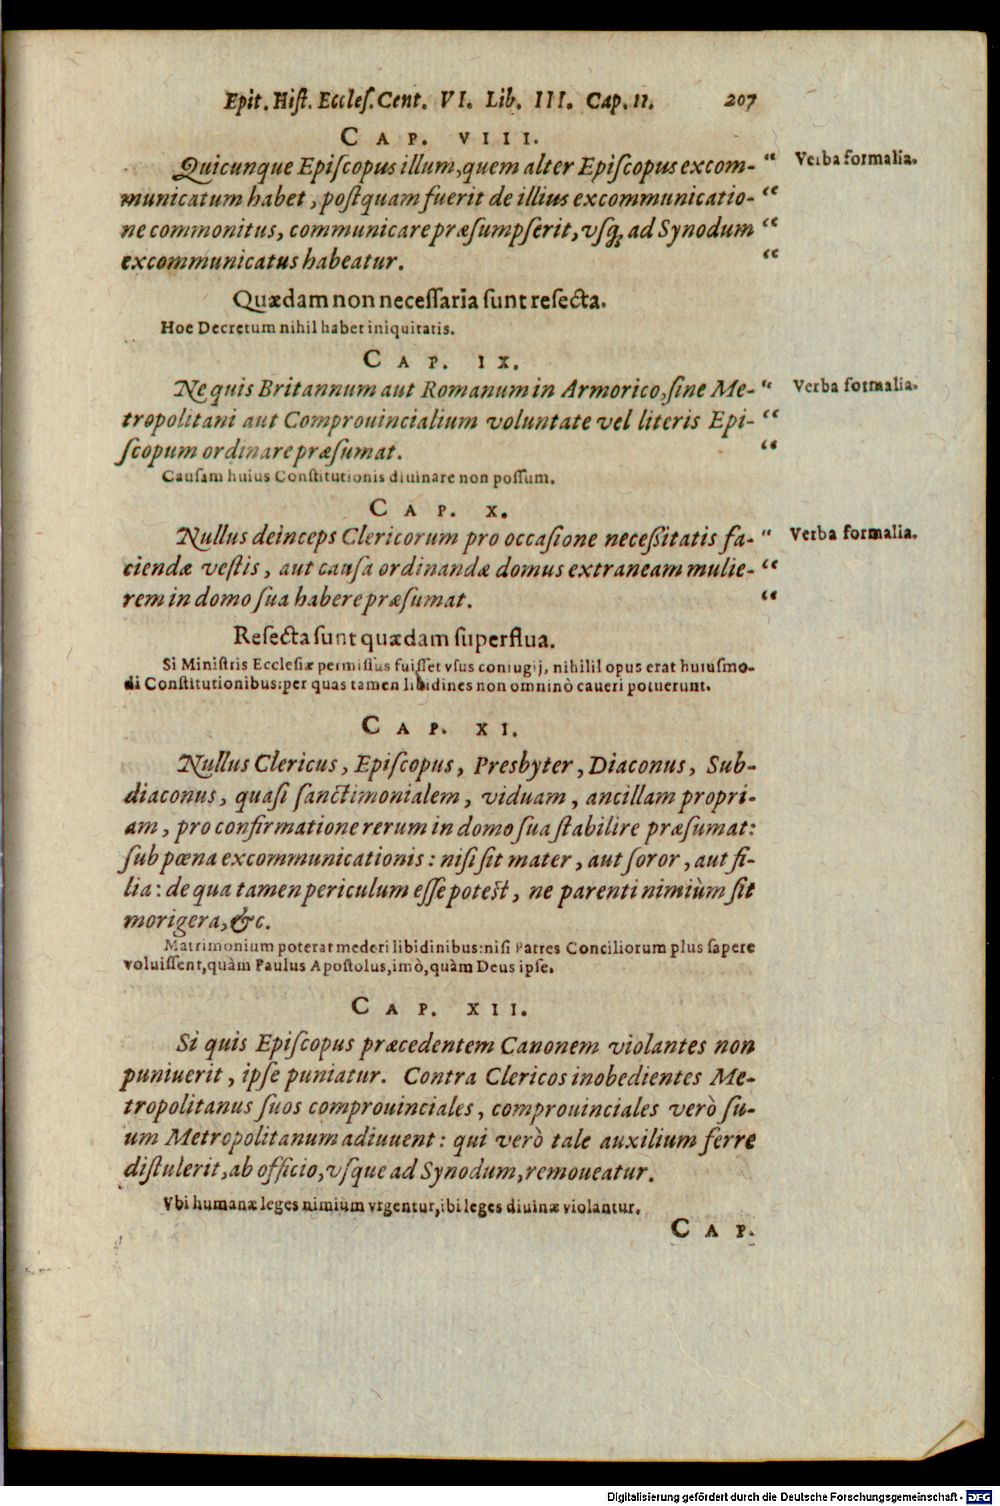 Epit. Hiſt. Eccleſ. Cent. VI. Lib. III. Cap. 11. 207
CAP. VIII.
Quicunque Epiſcopus illum, quem alter Epiſcopus excom- “ Verba formalia.
municatum habet, poſtquam fuerit de illius excommunicatio- “
ne commonitus, communicare præſumpſerit, vſq; ad Synodum “
excommunicatus habeatur. “
Quædam non neceſſaria ſunt reſecta.
Hoe Decretum nihil habet iniquitatis.
CAP. IX.
Ne quis Britannum aut Romanum in Armorico, ſine Me- “ Verba formalia.
tropolitani aut Comprouincialium voluntate vel literis Epi- “
ſcopum ordinare præſumat. “
Cauſam huius Conſtitutionis diuinare non poſſum.
CAP. X.
Nullus deinceps Clericorum pro occaſione neceßitatis fa- “ Verba formalia.
ciendæ veſtis, aut cauſa ordinandæ domus extraneam mulie- “
rem in domo ſua habere præſumat. “
Reſecta ſunt quædam ſuperflua.
Si Miniſtris Eccleſiæ permiſſus fuiſſet vſus coniugij, nihilil opus erat huiuſmo-
di Conſtitutionibus: per quas tamen libidines non omninò caueri potuerunt.
CAP. XI.
Nullus Clericus, Epiſcopus, Presbyter, Diaconus, Sub-
diaconus, quaſi ſanctimonialem, viduam, ancillam propri-
am, pro confirmatione rerum in domo ſua ſtabilire præſumat:
ſub pœna excommunicationis: niſi ſit mater, aut ſoror, aut fi-
lia: de qua tamen periculum eſſe poteſt, ne parenti nimiùm ſit
morigera, &c.
Matrimonium poterat mederi libidinibus: niſi Patres Conciliorum plus ſapere
voluiſſent, quàm Paulus Apoſtolus, imò, quàm Deus ipſe.
CAP. XII.
Si quis Epiſcopus præcedentem Canonem violantes non
puniuerit, ipſe puniatur. Contra Clericos inobedientes Me-
tropolitanus ſuos comprouinciales, comprouinciales verò ſu-
um Metropolitanum adiuuent: qui verò tale auxilium ferre
diſtulerit, ab officio, vſque ad Synodum, remoueatur.
Vbi humanæ leges nimium vrgentur, ibi leges diuinæ violantur.
CAP.
Digitalisierung gefördert durch die Deutsche Forschungsgemeinschaft - DFG